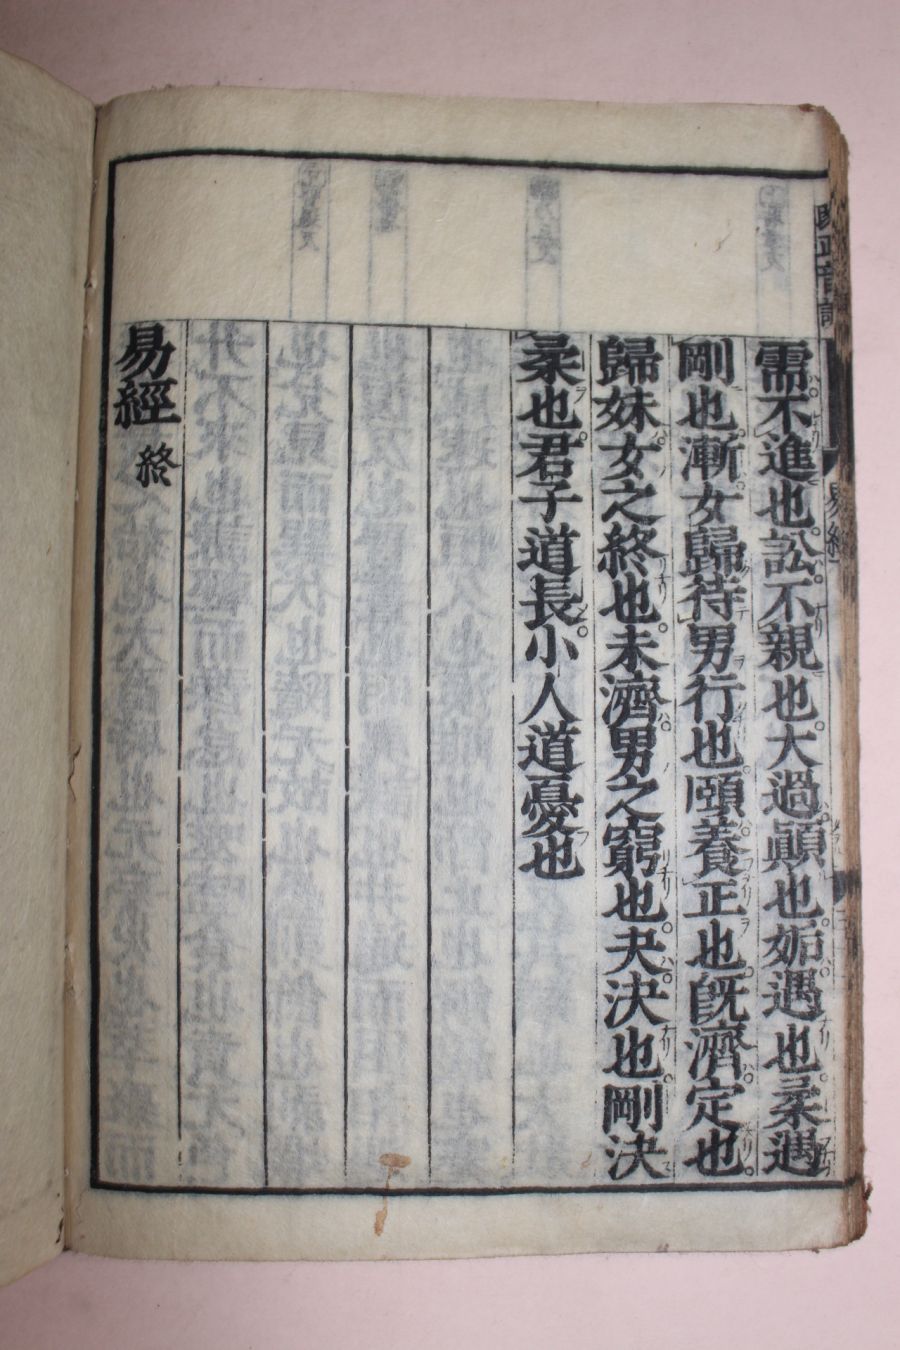 需不進也訟不親也大過顚也姤遇也柔遇
剛也漸女歸待男行也頤養正也旣濟定也
歸妹女之終也未濟男之窮也夬決也剛決
柔也君子道長小人道憂也
易經 終